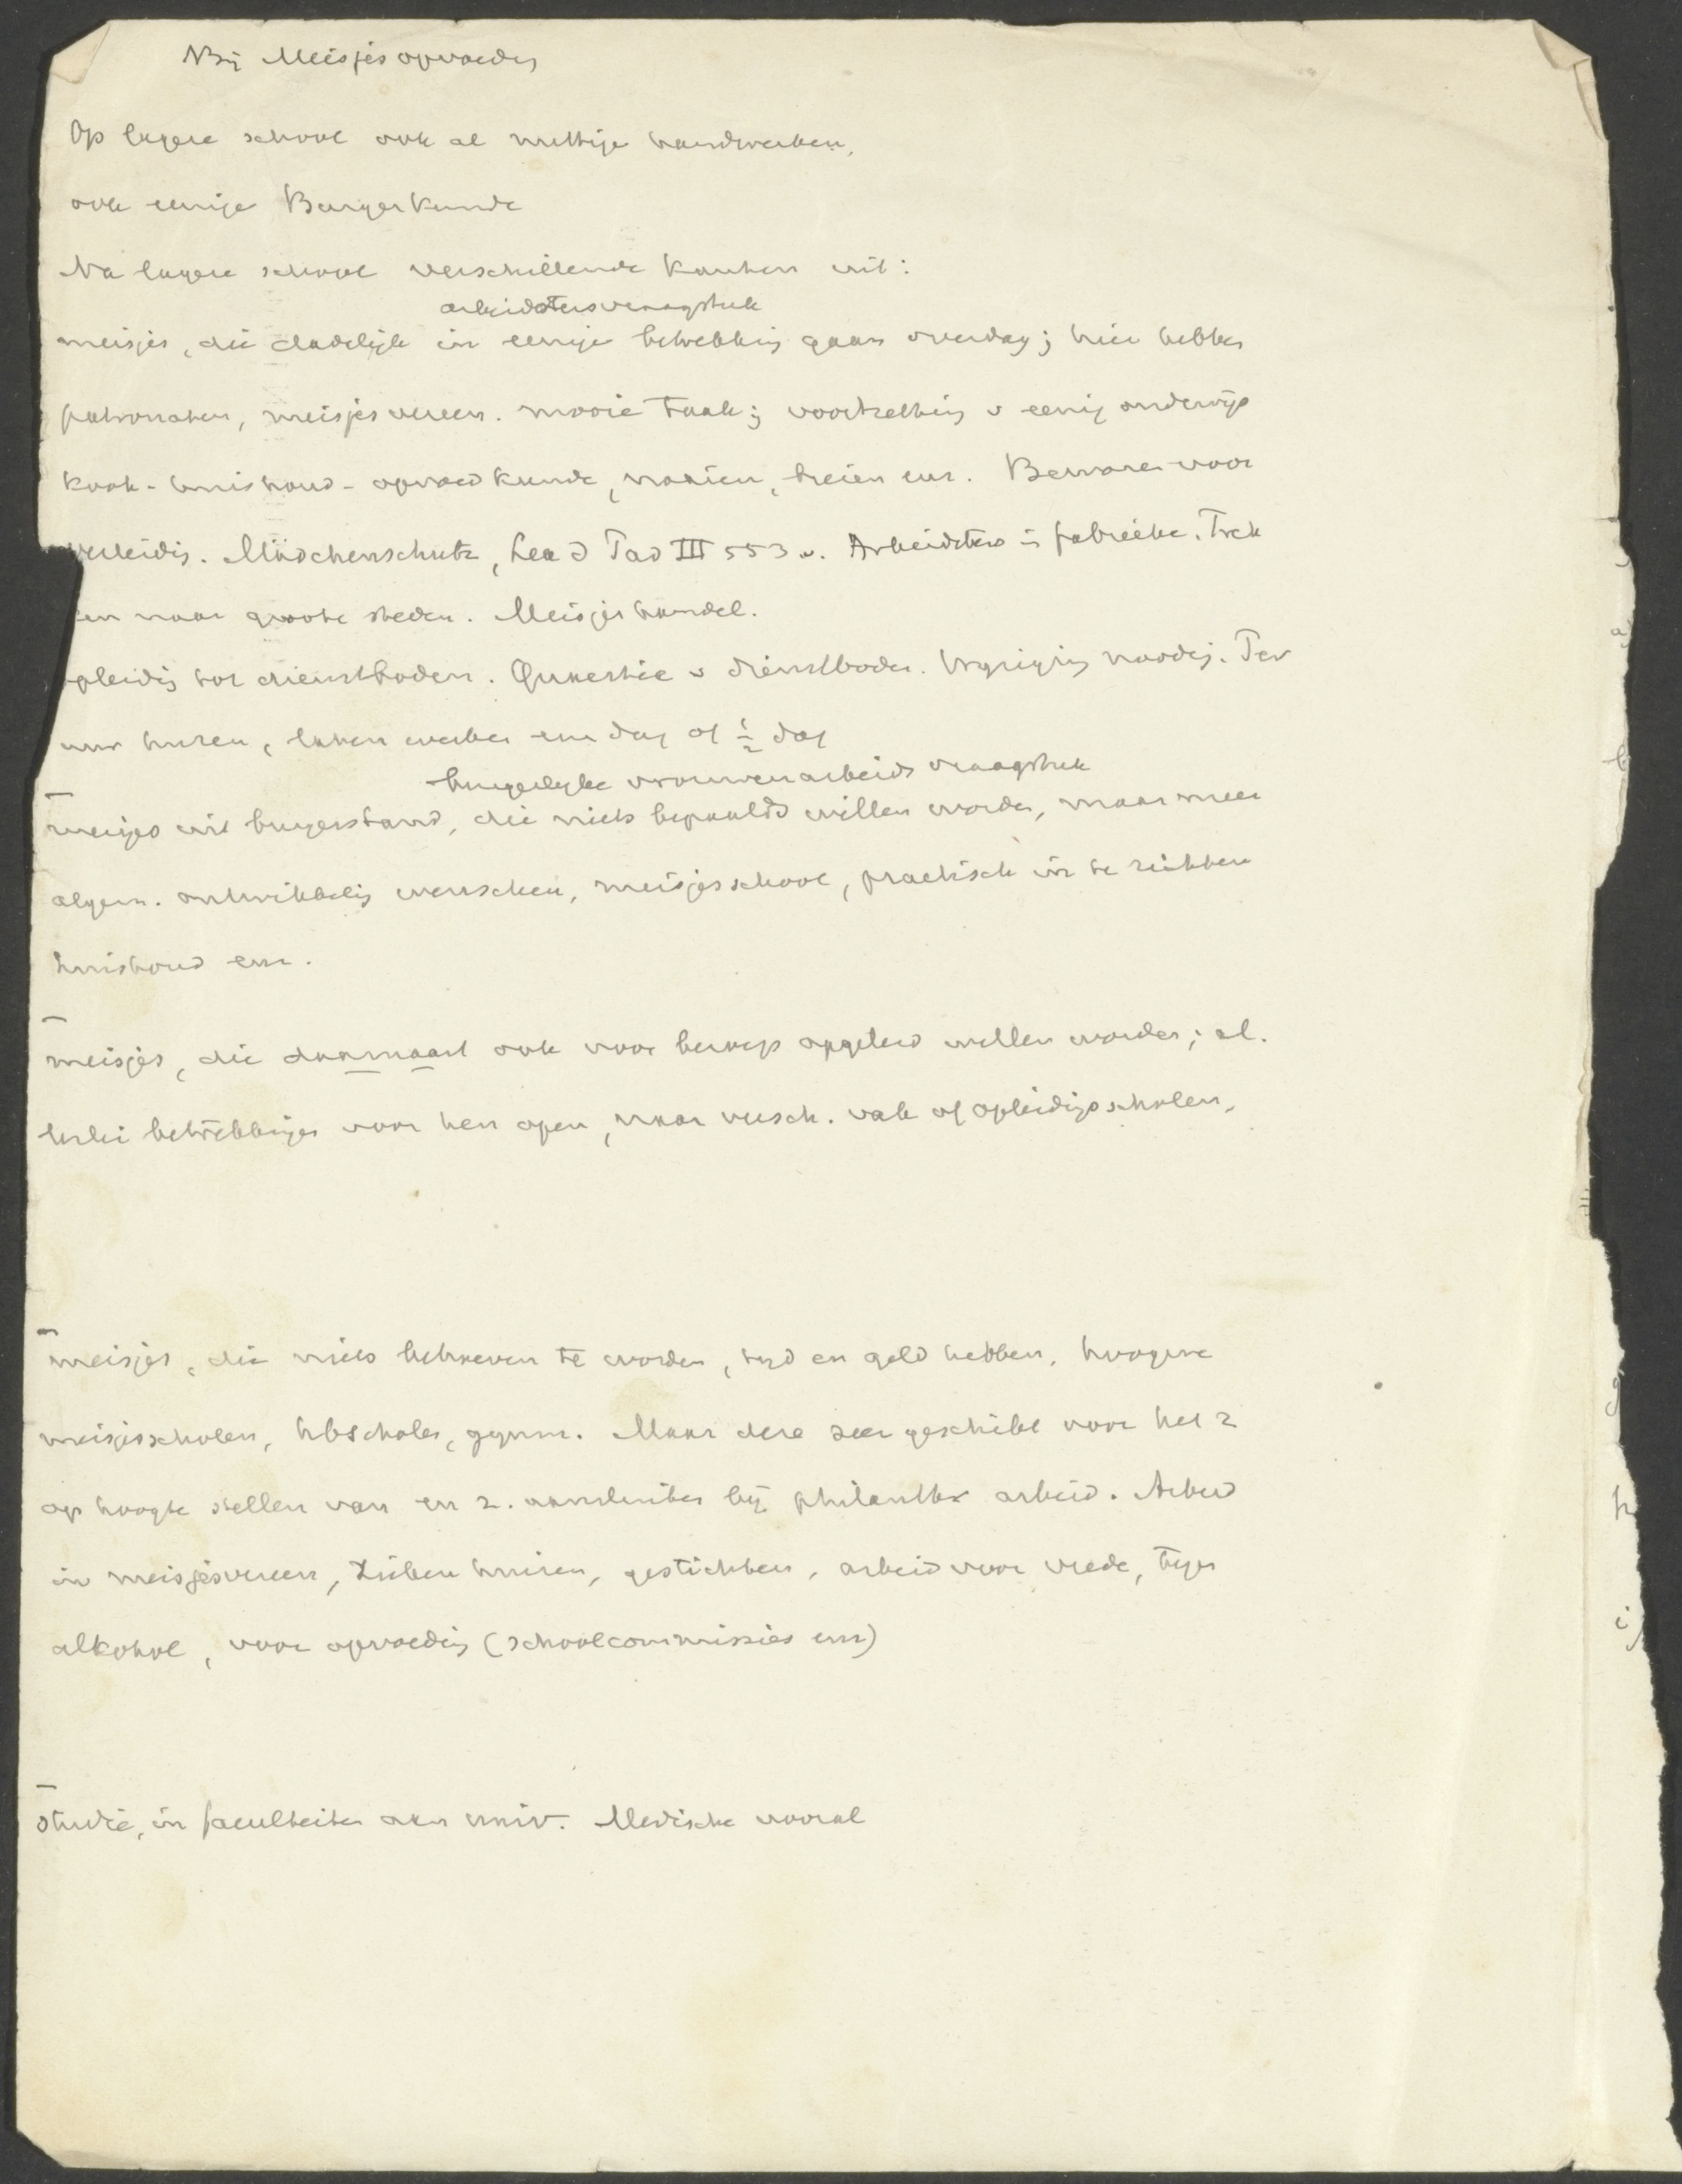 Bij Meisjesopvoeding
Op lagere school ook al nuttige handwerken,
ook eenige Burgerkunde
Na lagere school verschillende kanten uit:
arbeidstersvraagstuk
meisjes, die dadelijk in eenige betrekking gaan overdag; hier hebben
patronaten, meisjesvereen. mooie taak; voortzetting v eenig onderwijs
kook- huishoud- opvoedkunde, naaien, breien enz. Bewaren voor
verleidg. Mädchenschutz, Lea d Tad III 553 v. Arbeidsters in fabrieken. Trek
ken naar groote steden. Meisjeshandel.
opleidg tot dienstboden. Quaestie v dienstboden. Wijziging noodig. Per
uur huren, laten werken een dag of ½ dag
burgerlijke vrouwenarbeidsvraagstuk
meisjes uit burgerstand, die niets bepaalds willen worden, maar meer
algem. ontwikkelg wenschen, meisjesschool, practisch in te richten
huishoud enz.
meisjes, die daarnaast ook voor beroep opgeleid willen worden; al.
lerlei betrekkingen voor hen open, naar versch. vak of opleidgsscholen,
meisjes, die niets behoeven te worden, tijd en geld hebben, hoogere
meisjesscholen, hbscholen, gymn. Maar deze zeer geschikt voor het z
op hoogte stellen van en z. aansluiten bij philanthr arbeid. Arbeid
in meisjesvereen, ziekenhuizen, gestichten, arbeid voor vrede, tegen
alkohol, voor opvoeding (schoolcommissies enz)
studie, in faculteiten aan univ. Medische vooral
a)
b
g
h
i)